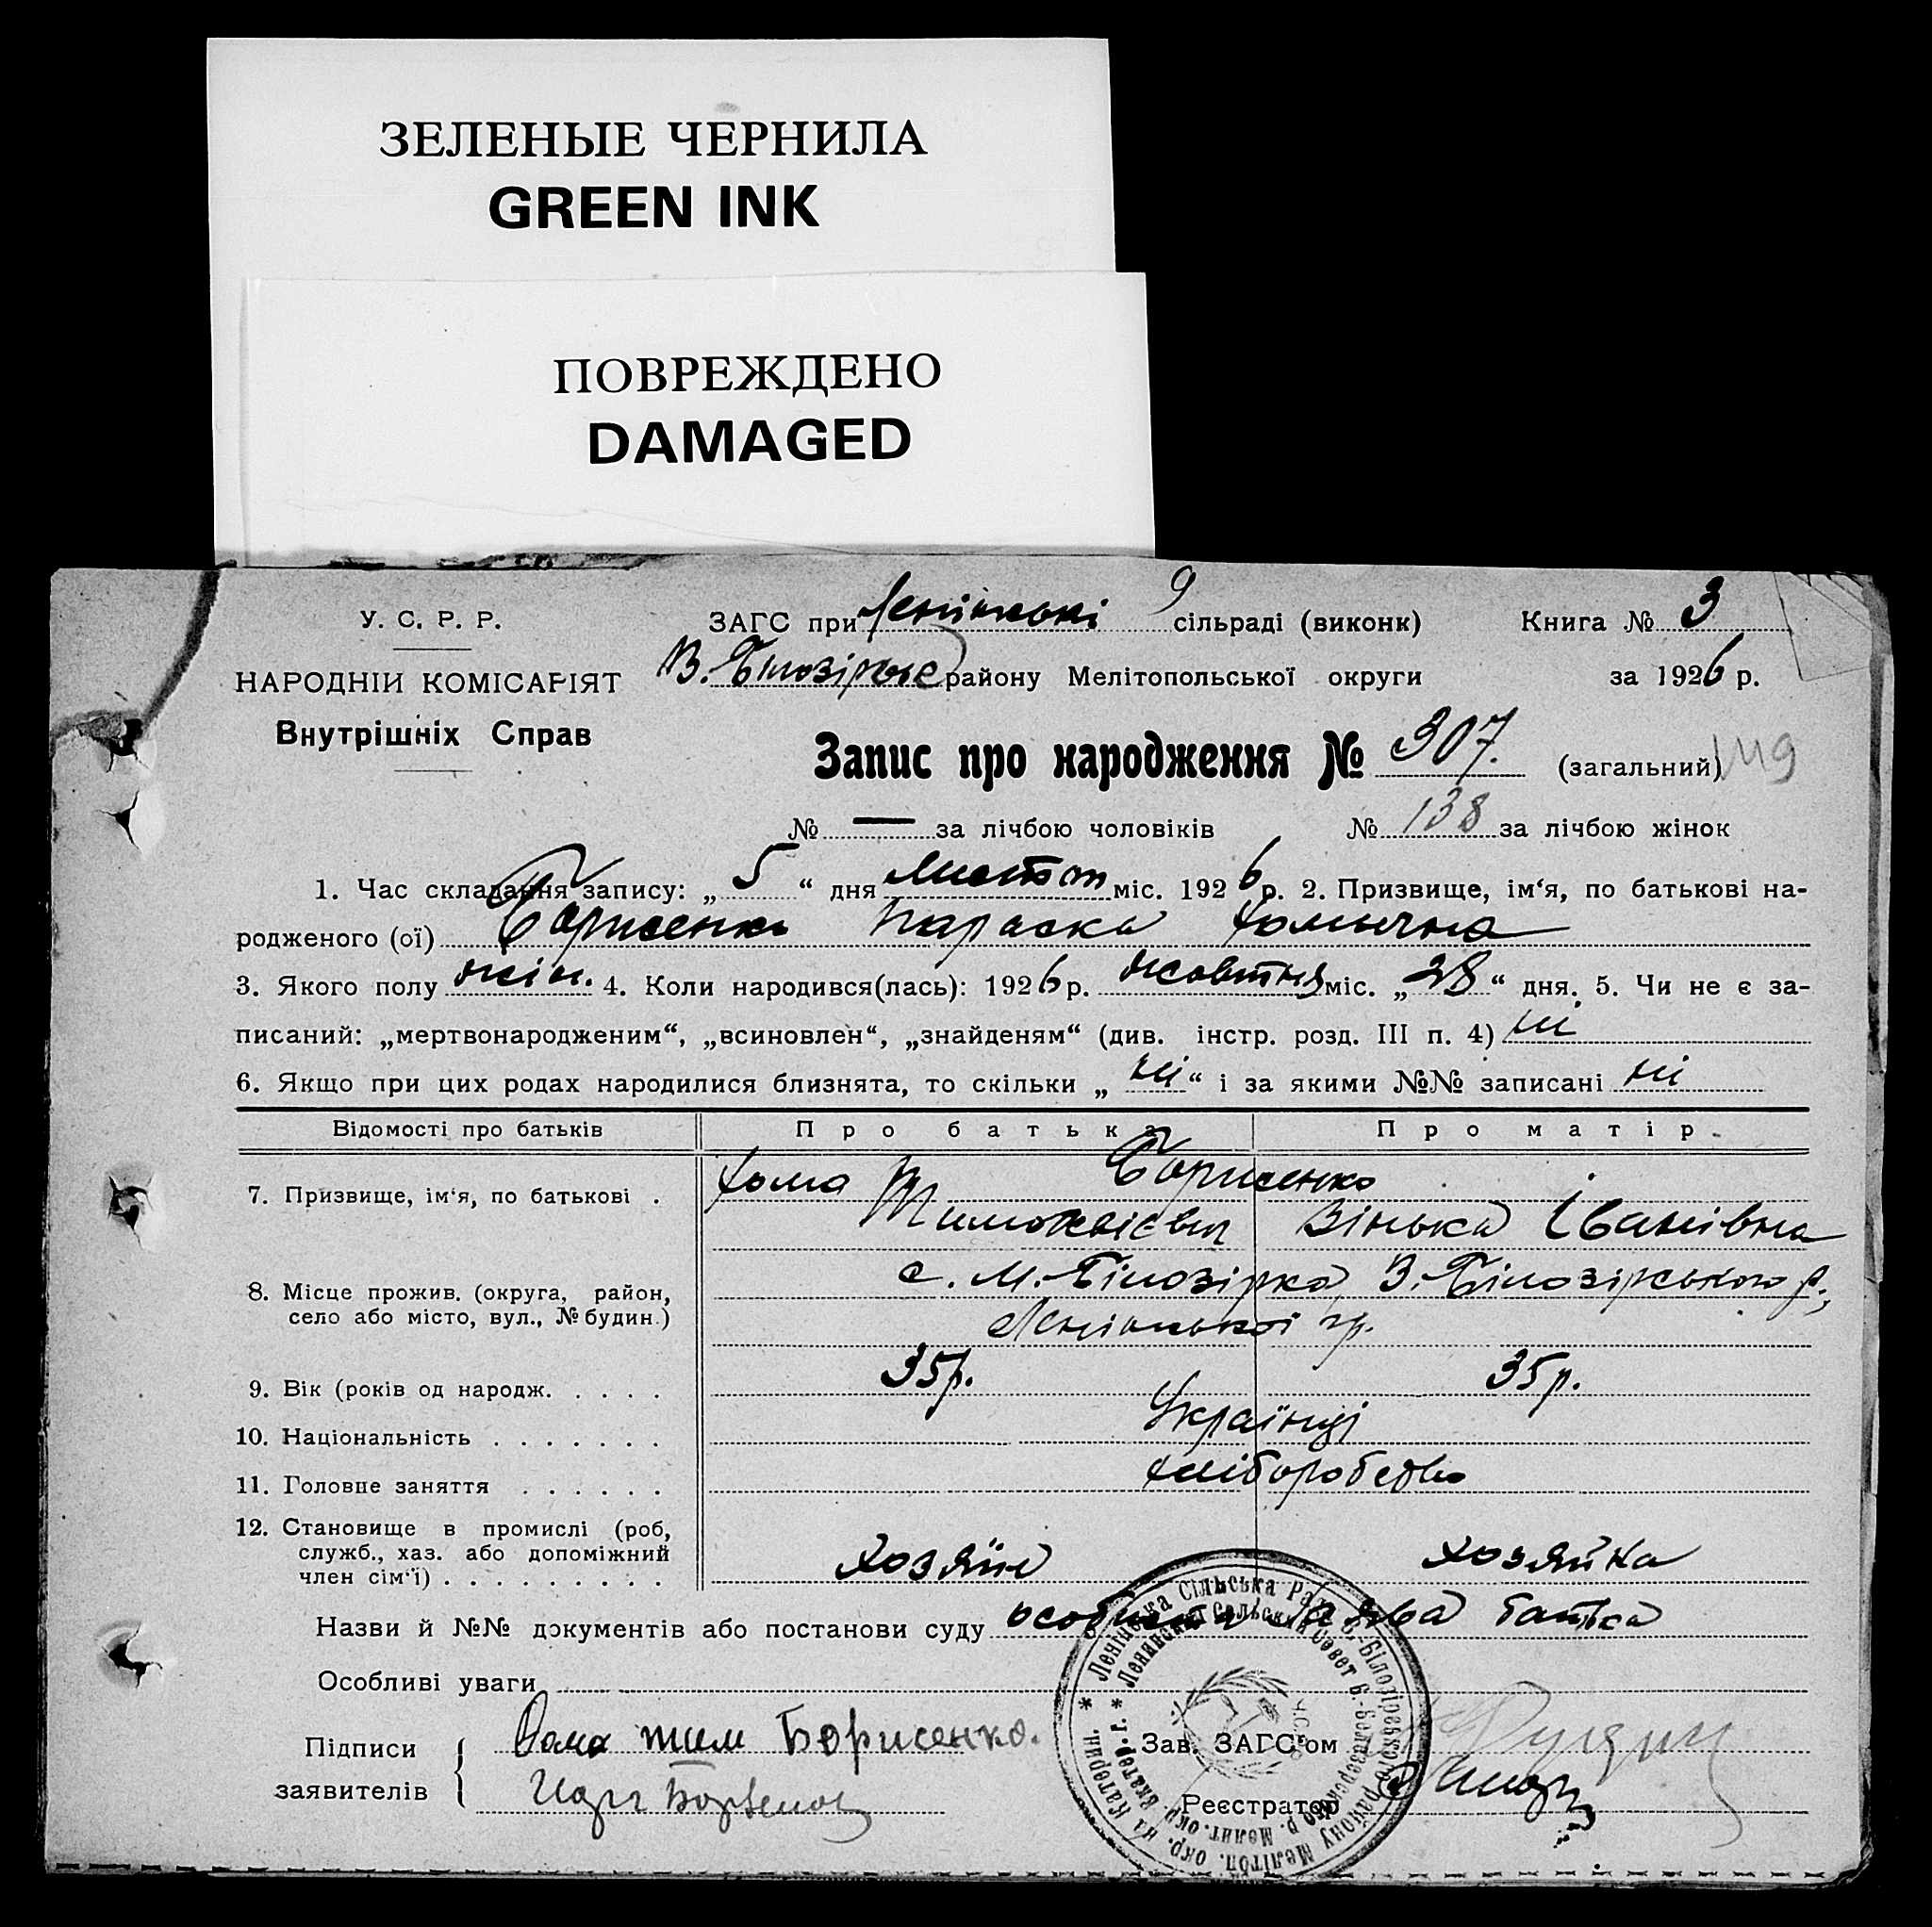 ЗЕЛЕНЫЕ ЧЕРНИЛА
GREEN INK
ПОВРЕЖДЕНО
DAMAGED
У. С. Р. Р.
НАРОДНІЙ КОМІСАРІЯТ
Внутрішніх Справ
ЗАГС при Ленінські 9 сільраді (виконк) Книга № 3
В. Білозірськ району Мелітопольської округи за 1926 р.
Запис про народження № 307. (загальний) 149
№ — за лічбою чоловіків № 138 за лічбою жінок
1. Час складання запису: „ 5 “ дня листоп міс. 1926 р. 2. Призвище, ім‘я, по батькові на-
родженого (ої) Борисенко Параска Хомична
3. Якого полу жін. 4. Коли народився(лась): 1926 р. жовтня міс. „ 28 “ дня. 5. Чи не є за-
писаний: „мертвонародженим“, „всиновлен“, „знайденям“ (див. інстр. розд. III п. 4) ні
6. Якщо при цих родах народилися близнята, то скільки „ ні “ і за якими №№ записані ні
Відомості про батьків Про батька Про матір
7. Призвище, ім‘я, по батькові . Хома Борисенко
Тимофієвич Зінька Іванівна
8. Місце прожив. (округа, район,
село або місто, вул., № будин.)
с. М.-Білозірка, В.-Білозірського р.,
Ленінської
9. Вік (років од народж. . . . . 35 р. 35 р.
10. Національність . . . . . . . Українці
11. Головне заняття . . . . . . хліборобство
12. Становище в промислі (роб,
служб., хаз. або допоміжний
член сім‘ї) . . . . . . . . . Хозяїн Хозяйка
Назви й №№ документів або постанови суду особиста заява батька
Особливі уваги
Підписи
заявителів
Хома Тим Борисенко.
Зав. ЗАГС‘ом
Реєстратор
* Ленінська Сільська Рада В.-Білозірського району Мелітоп. окр. на Катерин.
* Ленинский Сельский Совет Б.-Белозерского р. Мелит. окр. Екатер. г.
У.С.Р.Р.